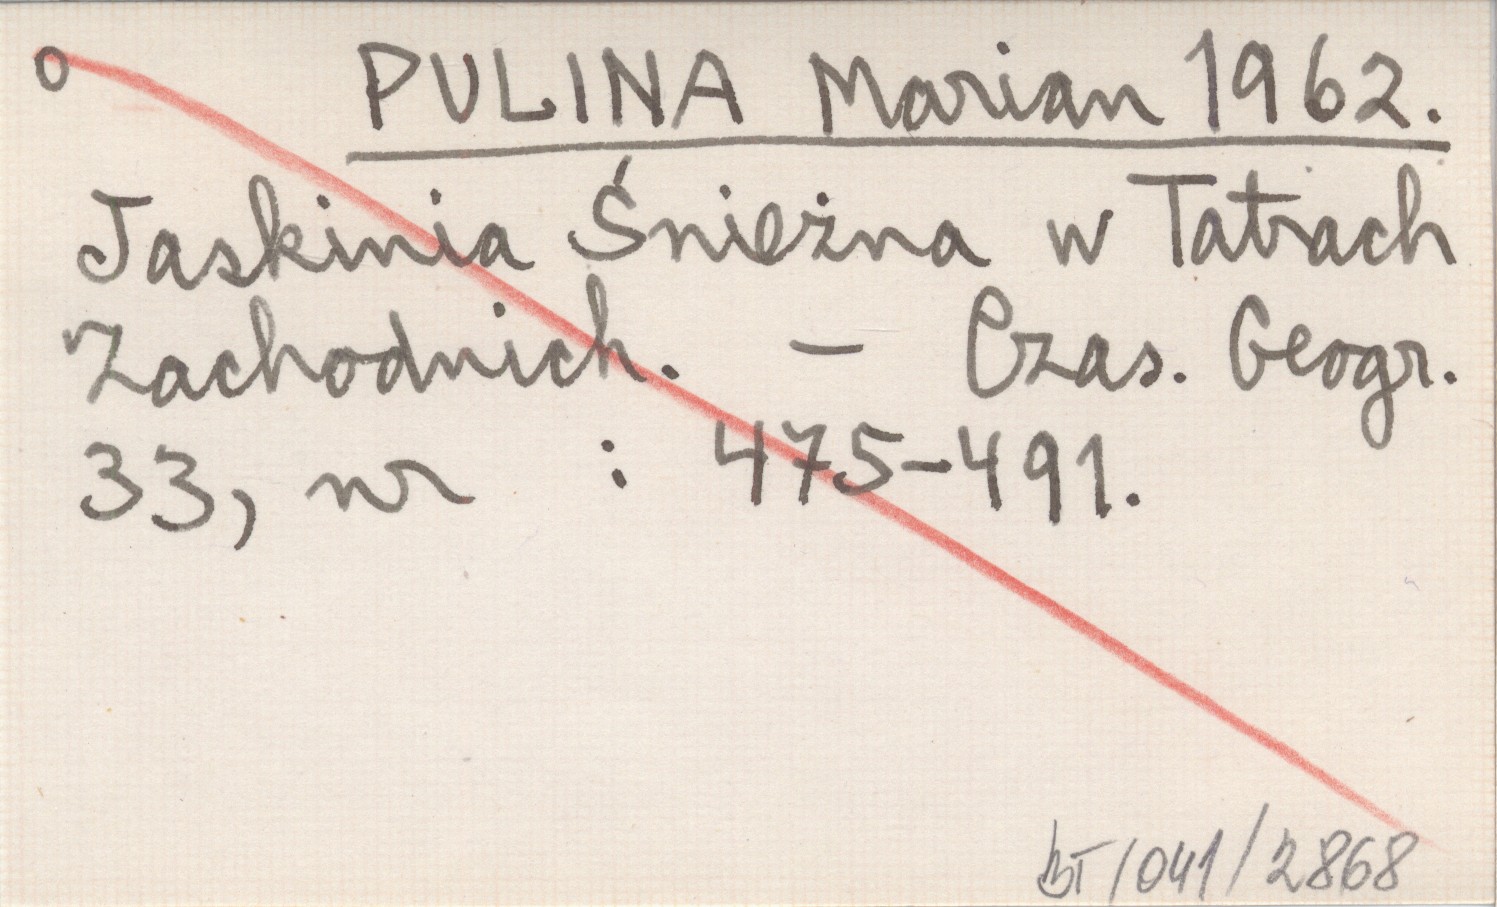 o PULINA Marian 1962.
Jaskinia Śnieżna w Tatrach
Zachodnich. – Czas. Geogr.
33, nr : 475-491.
BT/041/2868